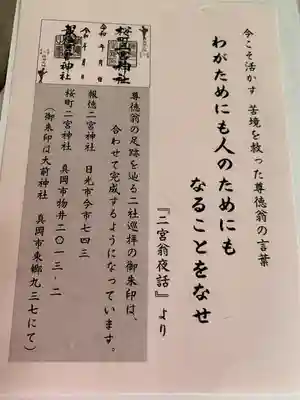 今こそ活かす 苦境を救った尊徳翁の言葉
わがためにも人のためにも
なることをなせ
『二宮翁夜話』より
桜町二宮神社
令和 年 月 日
報徳二宮神社
令和 年 月 日
尊徳翁の足跡を辿る二社巡拝の御朱印は、
合わせて完成するようになっています。
報徳二宮神社 日光市今市七四三
桜町二宮神社 真岡市物井二〇一三-二
（御朱印は大前神社 真岡市東郷九三七にて）